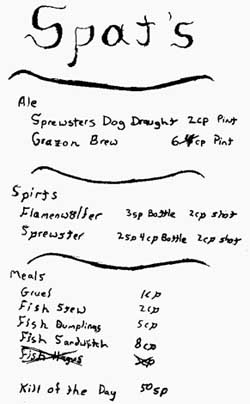 Spat's
Ale
Sprewsters Dog Draught 2cp Pint
Grazon Brew 6cp Pint
Spirts
Flamenwülfer 3sp Bottle 2cp shot
Sprewster 2sp4cp Bottle 2cp shot
Meals
Gruel 1cp
Fish Stew 2cp
Fish Dumplings 5cp
Fish Sandwitch 8cp
Fish
Kill of the Day 50sp